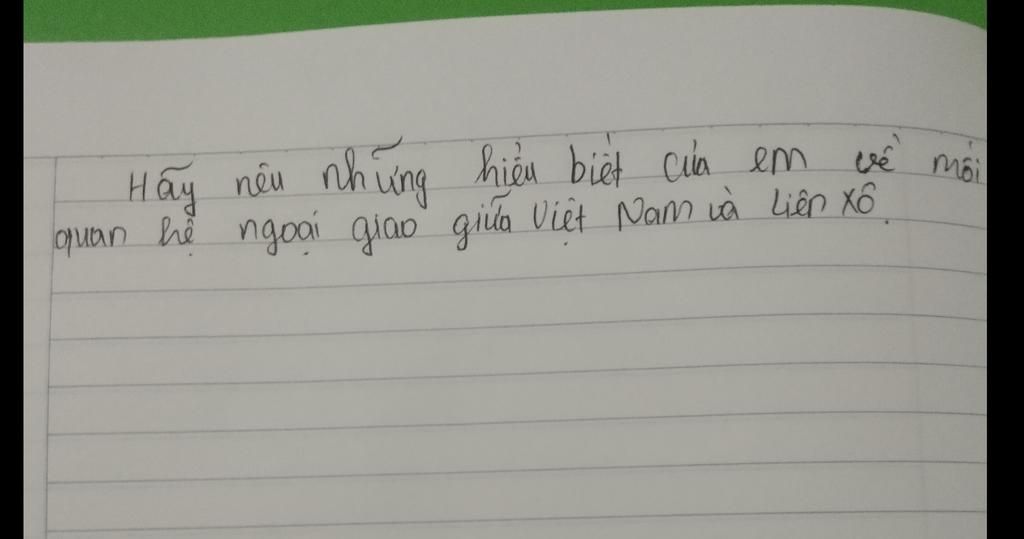 Hãy nêu những hiểu biết của em về mối
quan hệ ngoại giao giữa Việt Nam và Liên Xô.